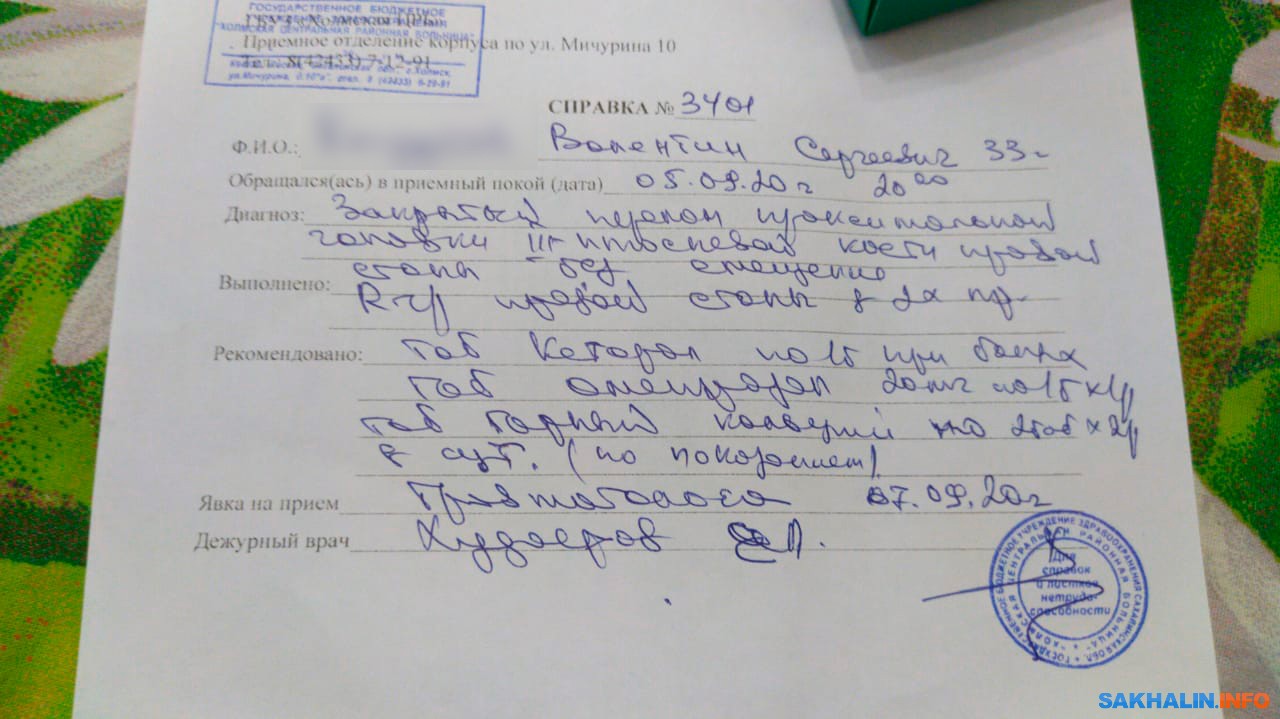 ГОСУДАРСТВЕННОЕ БЮДЖЕТНОЕ
"ХОЛМСКАЯ ЦЕНТРАЛЬНАЯ РАЙОННАЯ БОЛЬНИЦА"
Приемное отделение корпуса по ул. Мичурина 10
Тел.: 8(42433) 7-12-91
ул.Мичурина,
СПРАВКА № 3401
Ф.И.О.: Валентин Сергеевич 33 г
Обращался(ась) в приемный покой (дата) 05.09.20 г 20 00
Диагноз: Закрытый перелом проксимальной
головки III плюсневой кости правой
стопы без смещения
Выполнено: R-гр правой стопы в 2х пр.
Рекомендовано: таб Кеторол по 1т при болях
таб омепразол 20мг по 1т х 1р
таб горный кальций по 2таб х 2р
в сут. (по показаниям)
Явка на прием травматолога 07.09.20г
Дежурный врач Худоеров
ГОСУДАРСТВЕННОЕ БЮДЖЕТНОЕ УЧРЕЖДЕНИЕ ЗДРАВООХРАНЕНИЯ САХАЛИНСКАЯ ОБЛ.
"ХОЛМСКАЯ ЦЕНТРАЛЬНАЯ РАЙОННАЯ БОЛЬНИЦА"
Для
справок
и листков
нетрудо-
способности
SAKHALIN.INFO